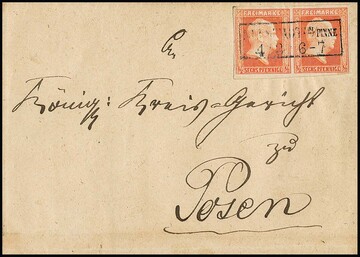 FREIMARKE FREIMARKE
NEUSTADT B/PINNE
4 2 6-7
½ SECHS PFENNIGE ½ ½ SECHS PFENNIGE ½
An
Königl: Kreis-Gericht
zu
Posen